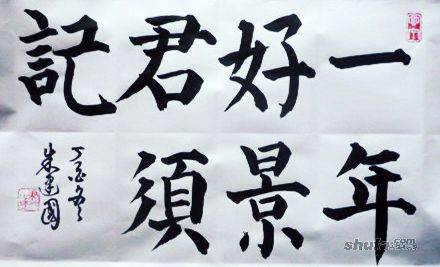 一年
好景
君須
記
丁冬
朱建國